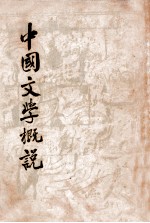 中國文學概說